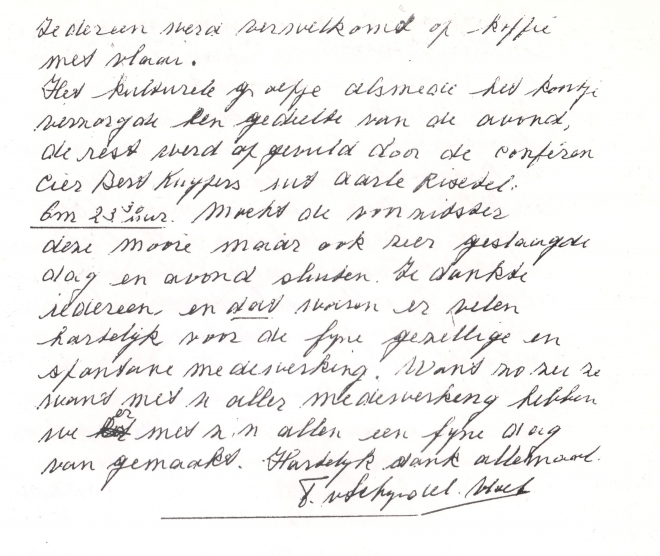 Iedereen werd verwelkomd op koffie
met vlaai.
Het kulturele groepje alsmede het koortje
verzorgde een gedielte van de avond,
de rest werd op gevuld door de conféren
cier Bert Kuypers uit Aarle Rixtel.
Om 23³⁰ uur. Mocht de voorzidster
deze mooie maar ook zeer geslaagde
dag en avond sluiten. Ze dankte
iedereen, en dat waren er velen
hartelijk voor de fyne gezellige en
spontane medewerking. Want zo zei ze
want met 'n aller medewerking hebben
we er met z'n allen een fyne dag
van gemaakt. Hartelyk dank allemaal.
T. v Schyndel. Vloet